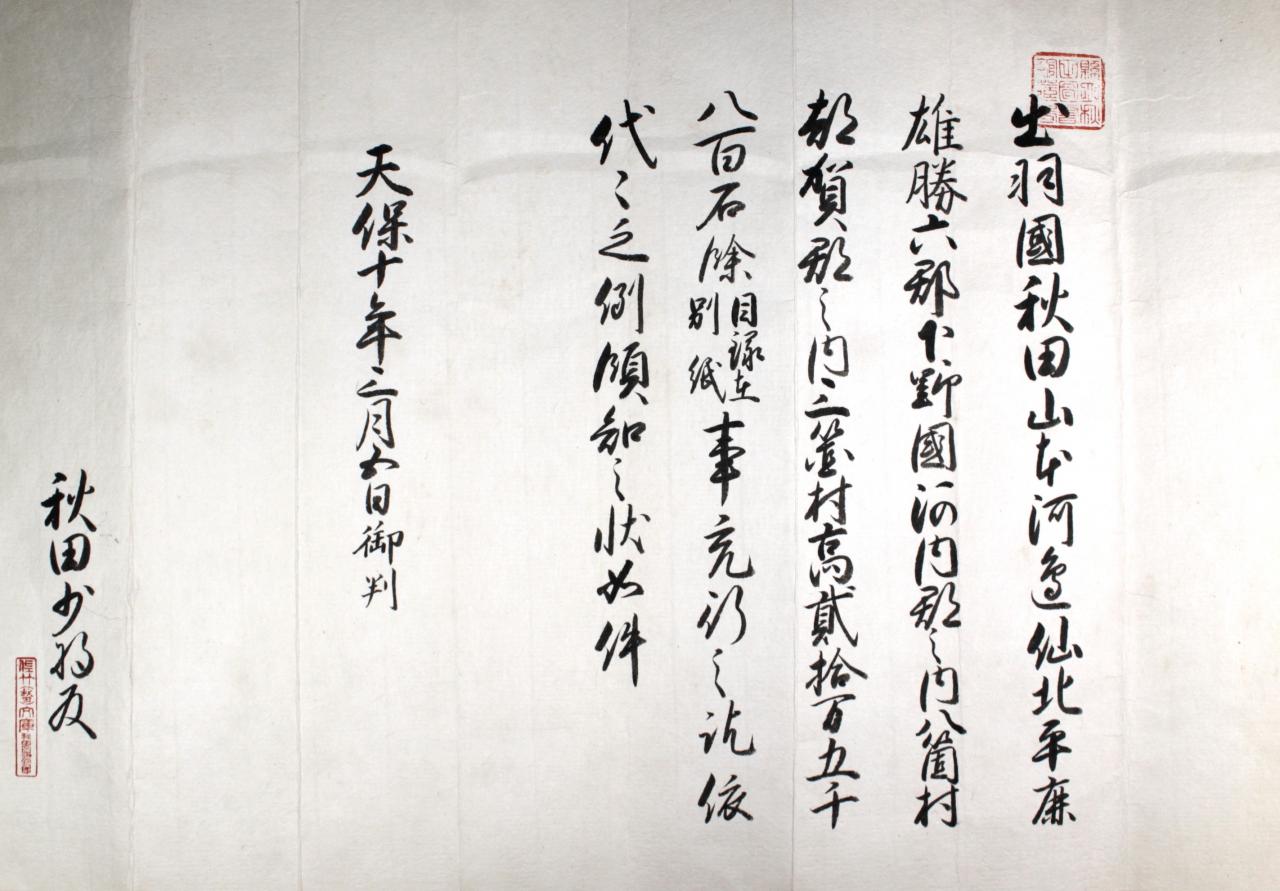 出羽國秋田山本河邊仙北平鹿
雄勝六郡下野國河内郡之内八箇村
都賀郡之内三箇村高貳拾万五千
八百石餘目録在別紙事充行之訖依
代々之例領知之状如件
天保十年三月五日御判
秋田少将殿